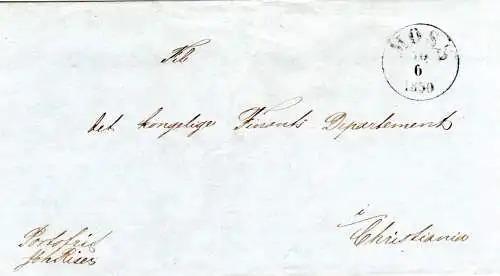 MOSS
6
1850
Til
det kongelige Finants Departement
i
Christiania
Portofrit